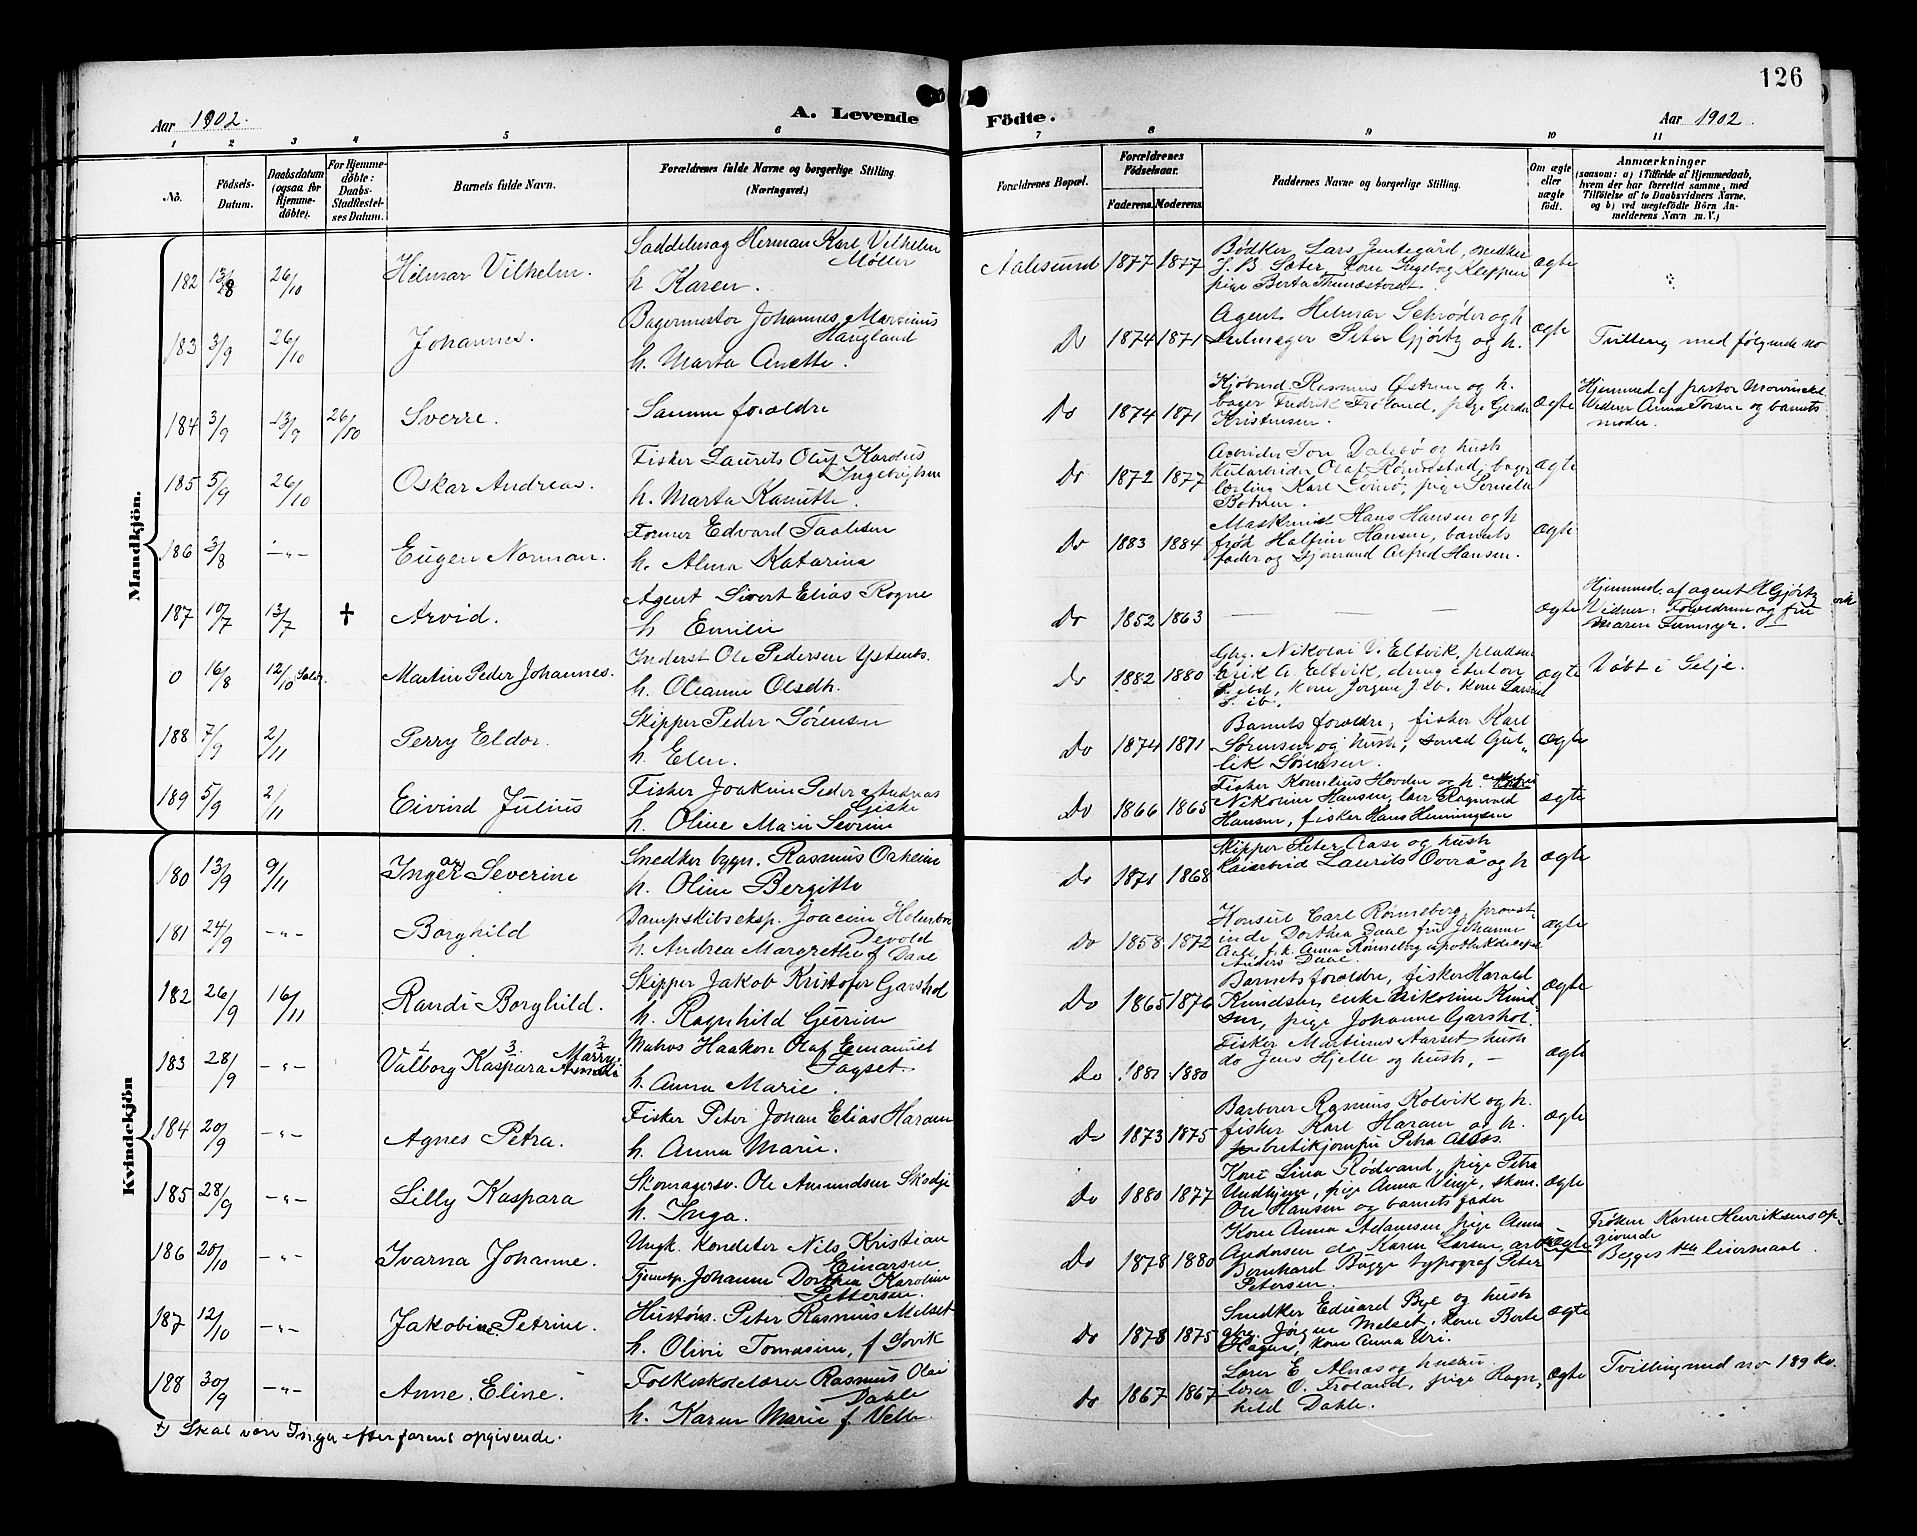 126
Aar 1902.
A. Levende Födte.
Aar 1902.
1 2 3 4 5 6 7 8 9 10 11
No.
Födsels-Datum.
Daabsdatum (ogsaa for Hjemmedöbte).
For Hjemmedöbte: Daabs-Stadfæstelses Datum.
Barnets fulde Navn.
Forældrenes fulde Navne og borgerlige Stilling (Næringsvei.)
Forældrenes Bopæl.
Forældrenes Födselsaar.
Faderens. Moderens.
Faddernes Navne og borgerlige Stilling.
Om ægte eller uægte født.
Anmærkninger
(saasom: a) i Tilfælde af Hjemmedaab, hvem der har forrettet samme, med Tilföielse af to Daabsvidners Navne. og b) ved uægtefödte Börn Anmelderens Navn m. V.)
Mandkjön.
182 13/8 26/10 Hilmar Vilhelm. Saddelmag Herman Karl Vilhelm Møller
h. Karen.
Aalesund 1877 1877 Bødker Lars
J. B. Sæter, kone Ingeborg Kleppen
pige Berta
ægte
183 3/9 26/10 Johannes. Bagermester Johannes Martinus Haugland
h. Marta Anette.
Do 1874 1871 Agent Helmar Schrøder og h
Peter Gjørtz og h.
ægte Tvilling med følgende no
184 3/9 13/9 26/10 Sverre. Samme forældre
Do 1874 1871 Kjøbmd. Rasmus Østrem og h.
bager Fredrik Frøland, pige Gerda
Kristensen.
ægte Hjemmed af pastor Mowinckel
Vidner Anna Torsen og barnets
moder.
185 5/9 26/10 Oskar Andreas. Fisker Laurits Oluf Kardus Ingebrigtsen
h. Marta Kanutte.
Do 1872 1877 Arbeider Tore Dalebø og hustr
Kularbeider Olaf Rønnestad, bager
lærling Karl
ægte
186 3/8 -"- Eugen Norman. Former Edvard Paulsen
h. Alma Katarina
Do 1883 1884 Maskinist Hans Hansen og h
frøk Halfrin Hansen, barnets
fader og sjømand Alfred Hansen.
ægte
187 10/7 13/7 † Arvid. Agent Sivert Elias Rogne
h Emilie
Do 1852 1863 — — —
ægte Hjemmed. af agent H Gjørtz
Vidner: Forældrene og fru
Maren
0 16/8 12/10 Selje. Martin Peder Johannes. Inderst Ole Pedersen Ystenes.
h. Oleanne Olsdh.
Do 1882 1880 Gbg. Nikolai V. Eltvik, pladsm
Erik A. Eltvik, dreng Anton
S. ibd, kone Jørgine J. ib. kone
S. ib.
ægte Døbt i Selje.
188 7/9 2/11 Perry Eldor. Skipper Peder Sørensen
h. Elen.
Do 1874 1871 Barnets forældre, fisker Karl
Sørensen og hustr, smed Gul-
lik Sørensen.
ægte
189 5/9 2/11 Eivind Julius Fisker Joakim Peder Andreas Giske
h. Oline Marie Severine
Do 1866 1865 Fisker Kornelius Hovden og h.
Nikoline Hansen, lær Ragnvald
Hansen, fisker Hans Henningsen
ægte
Kvindekjön
180 13/9 9/11 Inger Severine Snedker bygn. Rasmus Osheim
h. Oline Bergitte
Do 1871 1868 Skipper Peter Aase og hustr
Laurits Overå og h
ægte
181 24/9 -"- Borghild Dampskibseksp. Joacim Holmboe Devold
h. Andrea Margrethe f Daae
Do 1858 1872 Konsul Carl Rønneberg, provst-
inde Dorthea Daae fru Johanne
Aase, f.k. Anna Rønneberg apothekdesipl
Anders Daae
ægte
182 26/9 16/11 Randi Borghild. Skipper Jakob Kristofer Garshol
h. Ragnhild Gurine
Do 1865 1876 Barnets forældre, fisker Harald
Knudsen, enke Nikoline Knud-
sen, pige Johanne Garshol.
ægte
183 28/9 -"- Valborg Kaspara Marry Matros Haakon Olaf Emanuel Fagset.
h. Anna Marie
Do 1881 1880 Fisker Martinus Aarset hustr
do Jens Hjelle og hustr, -
ægte
184 20/9 -"- Agnes Petra. Fisker Peter Johan Elias Haram
h. Anna Marie.
Do 1873 1875 Barberer Rasmus Kolvik og h.
fisker Karl Haram og h.
butikjomfru Petra
ægte
185 28/9 -"- Lilly Kaspara Skomagersv. Ole Amundsen Skodje
h. Inga.
Do 1880 1877 Kone Lina Rødvand, pige Petra
Undhjem, pige Anna Vinje, skom.
Ole Hansen og barnets fader
ægte
186 20/10 -"- Ivarna Johanne. Ungk. Konditor Nils Kristian Einarsen
Tjenestp. Johanne Dorthea Karoline Pettersen.
Do 1878 1880 Kone Anna Adamsen pige Anna
Andersen do Karen Larsen, arb
Bernhard Bugge typograf Peter
Petersen.
uægte Frøken Karen Henriksens op-
givende
Begges 1ste leiermaal.
187 12/10 -"- Jakobine Petrine. Hustøm. Peter Rasmus Melset
h. Olivie Tomasine, f Sovik
Do 1878 1875 Snedker Eduard Bye og hustr
gbr. Jørgen Melset, kone Berte
Hagen, kone Anna Uri.
ægte
188 30/9 -"- Anne Eline. Folkeskolelærer Rasmus Olai Dahle
h. Karen Marie f. Velle.
Do 1867 1867 Lærer E Alnæs og hustru
lærer O. Frøland, pige Ragn-
hild Dahle.
ægte Tvilling med no 189 kv.
+) Skal være Inga efter farens opgivende.